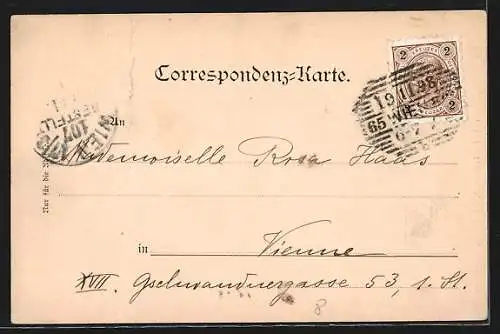 Correspondenz-Karte.
2 2
2
19.11.98
65 WIEN
6-7
WIEN
107
BESTELLT
An
Mademoiselle Rosa Haas
in Vienne
XVII. Gschwandnergasse 53, 1. St.
8
Nur für die